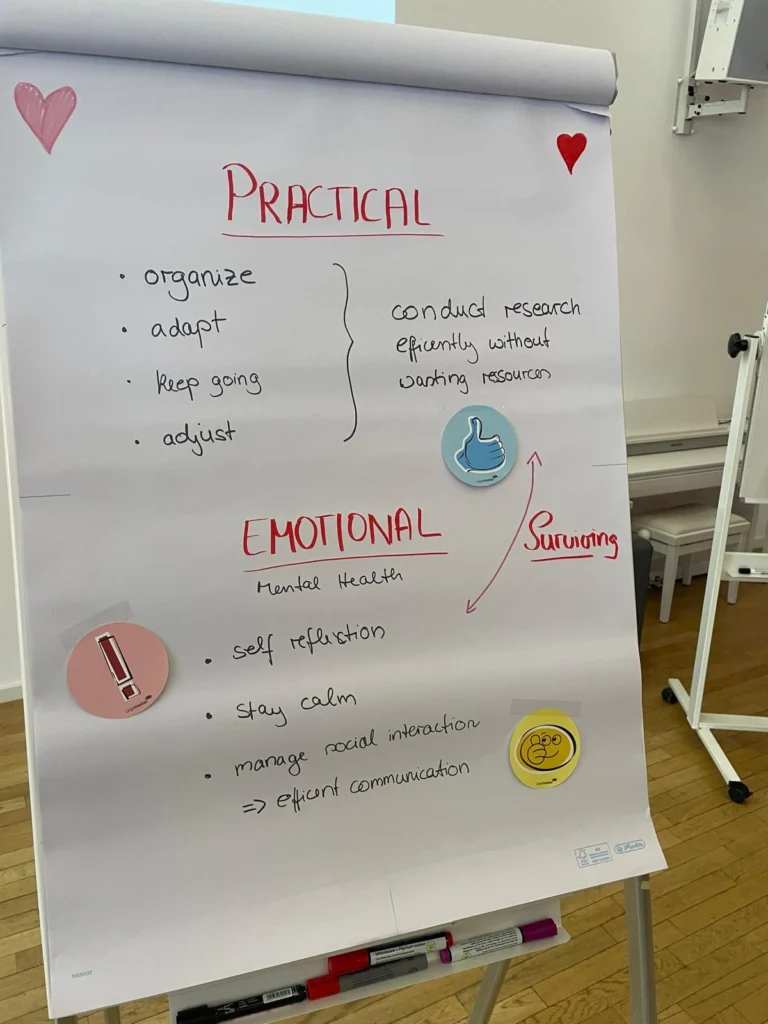 PRACTICAL
• organize
• adapt
• keep going
• adjust
conduct research
efficently without
wasting ressources
EMOTIONAL
Mental Health
Surviving
• self reflextion
• stay calm
• manage social interaction
=> efficent communication